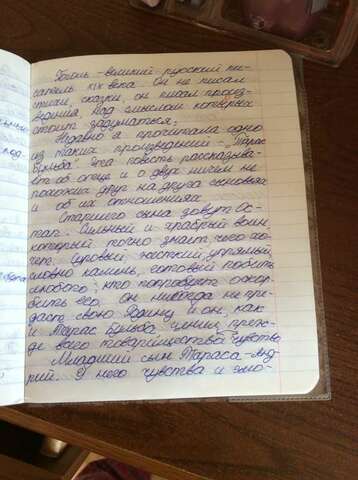 Гоголь - великий русский пи-
сатель XIX века. Он не писал
стихи, сказки, он писал произ-
ведения, над смыслом которых
стоит задуматься.
Недавно я прочитала одно
из таких произведений - "Тарас
Бульба". Эта повесть рассказыва-
ет об отце и о двух ничем не
похожих друг на друга сыновьях
и об их отношениях.
Старшего сына зовут Ос-
тап. Сильный и храбрый воин,
который точно знает, чего хо-
чет. Суровый, жёсткий, упрямый,
словно камень, готовый побить
любого, кто попробует оскор-
бить его. Он никогда не пре-
даст свою Родину и он, как
и Тарас Бульба ценил преж-
де всего товарищества чувство.
Младший сын Тараса - Анд-
рий. У него чувства и эмо-
под